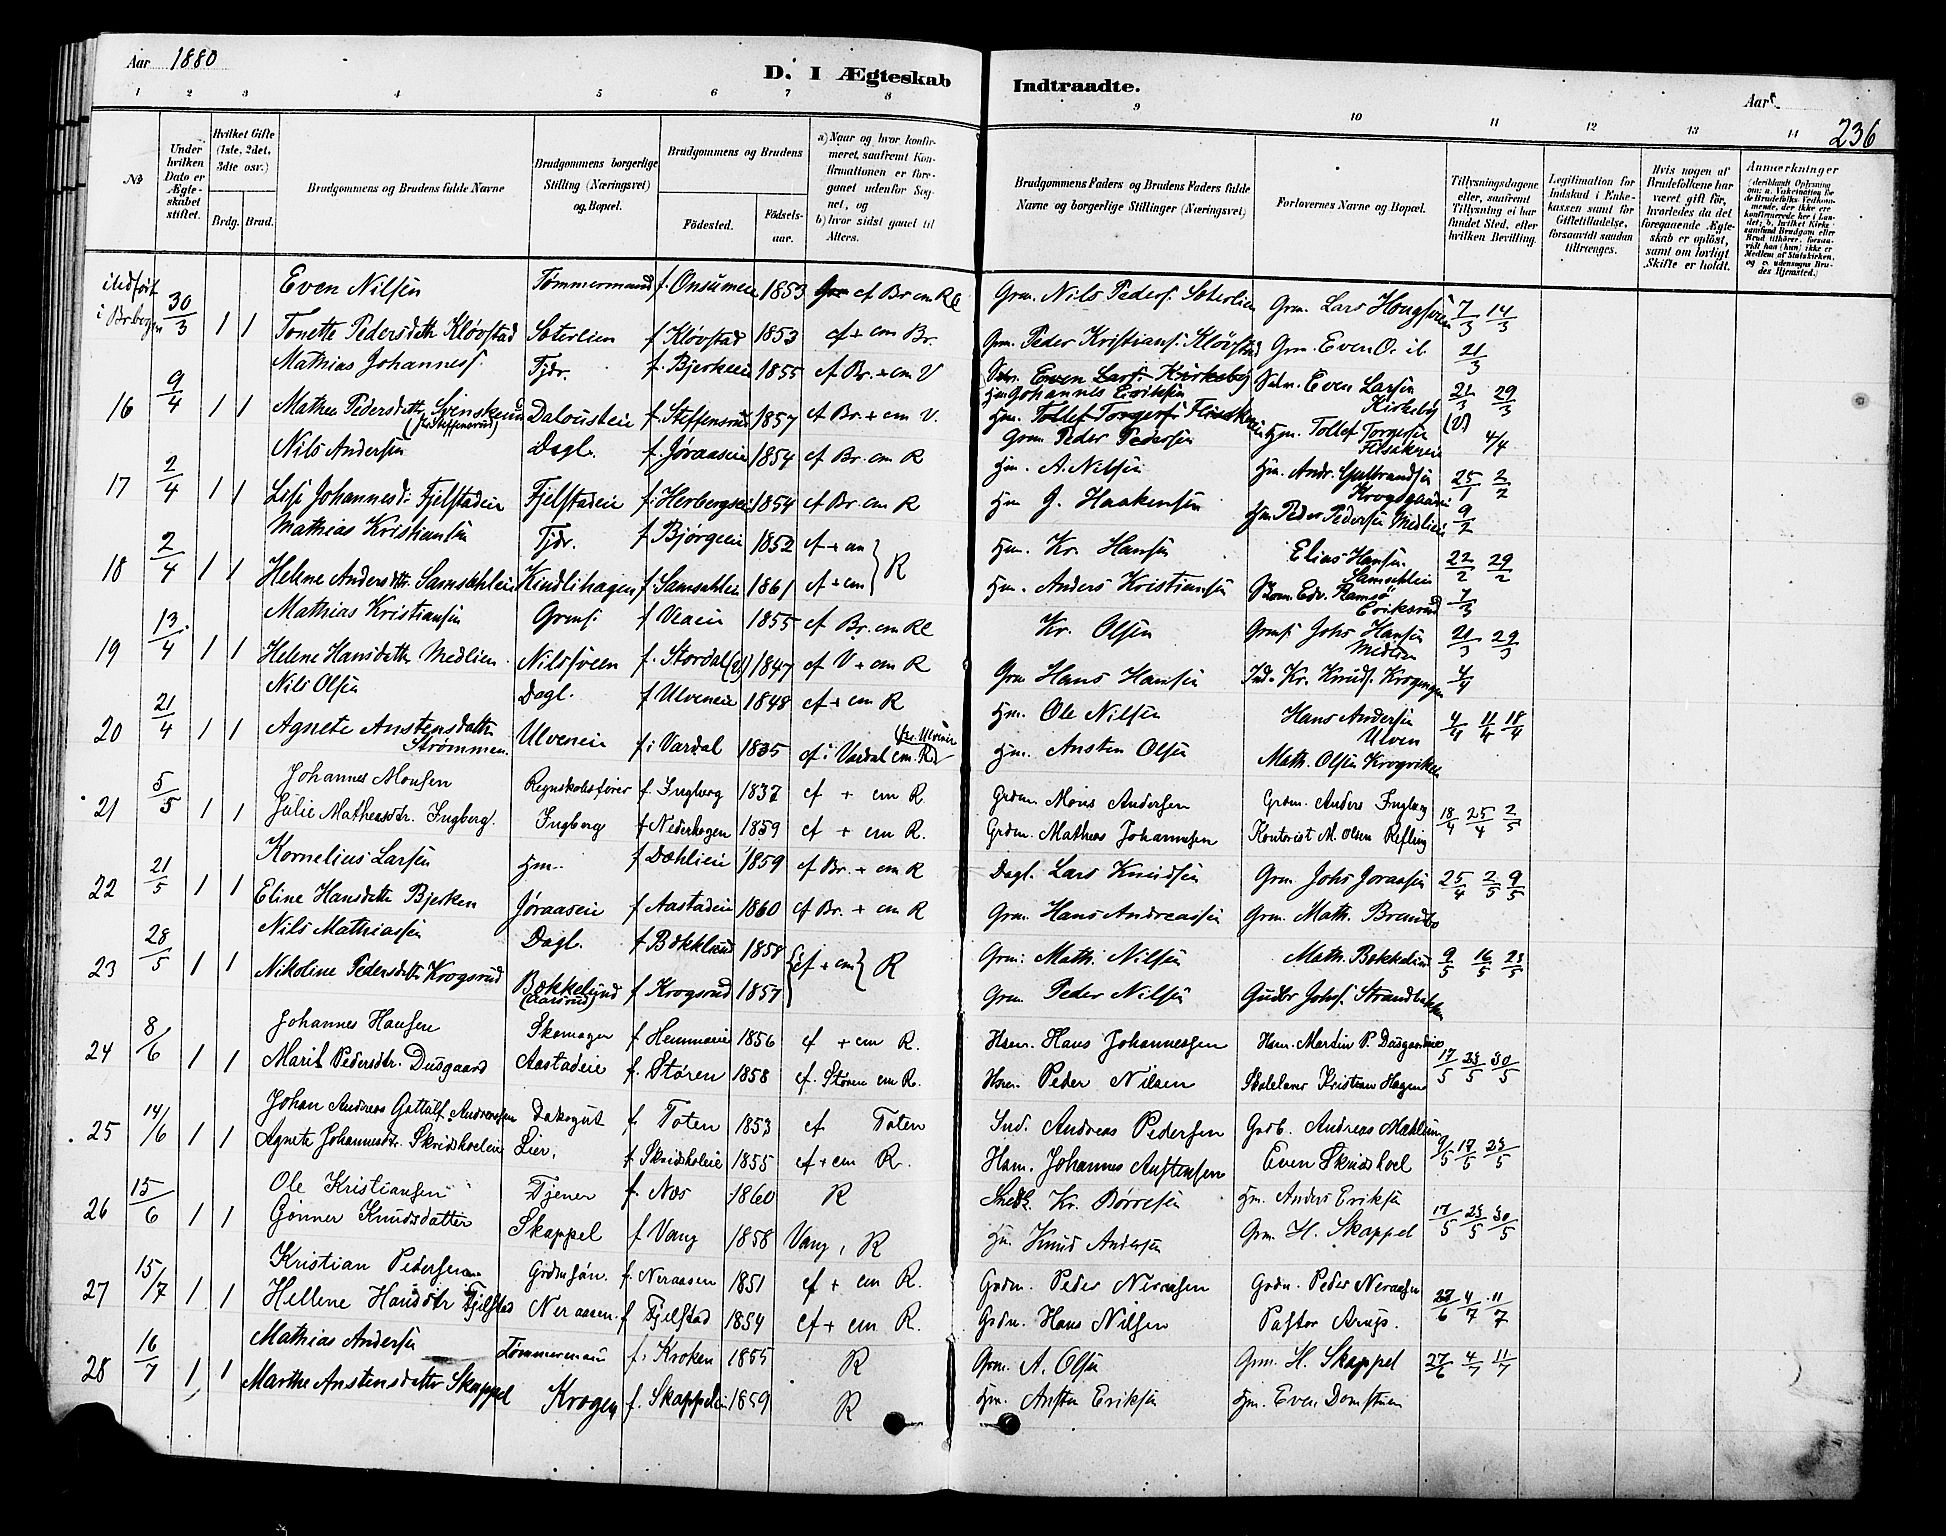 Aar 1880
D. I Ægteskab Indtraadte.
Aar
236
1 2 3 4 5 6 7 8 9 10 11 12 13 14
No
Under hvilken Dato er Ægteskabet stiftet.
Hvilket Gifte (1ste, 2det, 3die osv.)
Brdg. Brud.
Brudgommens og Brudens fulde Navne
Brudgommens borgerlige Stilling (Næringsvei) og Bopæl.
Brudgommens og Brudens
Fødested. Fødsels-aar.
a) Naar og hvor konfirmeret, saafremt Konfirmationen er foregaaet udenfor Sognet, og
b) hvor sidst gaaet til Alters.
Brudgommens Faders og Brudens Faders fulde Navne og borgerlige Stillinger (Næringsvei)
Forlovernes Navne og Bopæl.
Tillysningsdagene eller, saafremt Tillysning ei har fundet Sted, efter hvilken Bevilling.
Legitimation for Indskud i Enkekassen samt for Giftetilladelse, forsaavidt saadan tiltrænges.
Hvis nogen af Brudefolkene har været gift før, hvorledes da det foregaaende Ægteskab er opløst, samt om lovligt Skifte er holdt.
Anmærkninger
indført i Br.bogen 30/3 1 1
Even Nilsen Tømmermand f. Onsumeie 1853 cf Br cm Rl Grm. Nils Peders. Sæterlien Grm. Lars Haugsveen 7/3 14/3
Tonette Pedersdatter Kløvstad Sæterlien f Kløvstad 1853 cf + cm Br. Grm. Peder Kristians. Kløvstad Grm. Even O. ib 21/3
16 9/4 1 1
Mathias Johanness. Tjdr. f. Bjerkeeie 1855 cf Br. + cm V Even Lars. Kirkeby Hm Johannes Eriksen Selv. Even Larsen Kirkeby 21/3 29/3
Mathea Pedersdatter Svenskerud (f. Steffensrud) Daloustein f Steffensrud 1857 cf Br. + cm V. Grm Peder Pedersen Hm. Tollef Torgersen (V) 4/4
17 2/4 1 1
Nils Andersen Dagl. f Jøraaseie 1854 cf Br. cm R Hm. A. Nilsen Hm. Andr. Gulbrandsen Krogsgaard 25/1 2/2
Lisi Johannesd. Fjelstadeie Fjelstadeie f. Herbergseie 1854 cf Br. cm R Hm J. Haakensen Hm. Peder Pedersen Medlien 9/2
18 2/4 1 1
Mathias Kristiansen Tjdr. f Bjørgeeie 1852 cf + cm R Hm. Kr. Hansen Elias Hansen Samsæhlein 22/2 29/2
Helene Andersdatr. Samsæhlein Kindlihagen f. Samsæhlein 1861 cf + cm Hm. Anders Kristiansen Edv. Ramsø Eriksrud 7/3
19 13/4 1 1
Mathias Kristiansen Grms. f Veaeie 1855 cf Br. cm Rl Kr. Olsen Grms. Johs Hansen Medlien 21/3 29/3
Helene Hansdatter Medlien. Nilssveen f. Stordal (V) 1847 cf V + cm R Grm Hans Hansen Ind. Kr. Knuds. Krogengen 4/4
20 21/4 1 1
Nils Olsen Dagl. f Ulveneie 1848 cf + cm R Hm. Ole Nilsen Hans Andersen Ulven 4/4 11/4 18/4
Agnete Anstensdatter Strømmen. Ulveneie f. i Vardal 1835 cf i Vardal cm. R Hm. Ansten Olsen Math. Olsen Krogviken
21 5/5 1 1
Johannes Monsen Regnskabsfører f. Ingberg 1837 cf + cm R. Grdm. Mons Andersen Grdm. Anders Ingberg 18/4 25/4 2/5
Julie Matheasdr. Ingberg. Ingberg f Nederhagen 1859 cf + cm R. Grdm. Mathias Johannesen Kontorist M. Olsen Refling
22 21/5 1 1
Kornelius Larsen Hm. f Dæhlieie 1859 cf Br. + cm R Dagl. Lars Knudsen Grm. Johs Joraasen 25/4 2/5 9/5
Eline Hansdatter Bjerken Jøraaseie f Aastadeie 1860 cf Br. + cm R Grm. Hans Andreassen Grm. Math. Brandbo
23 28/5 1 1
Nils Mathiassen Dagl. f Bækklund 1858 cf + cm R Grm: Math. Nilsen Math. Bækkelund 9/5 16/5 23/5
Nikoline Pedersdatter Krogsrud Bækkelund f Krogsrud 1857 Grm. Peder Nilsen Gudbr Johs. Strandbakken
24 8/6 1 1
Johannes Hansen Skomager f Hemmaeie 1856 cf + cm R. Hsm. Hans Johannessen Hsm. Martin P. Dusgaardeie 17/5 23/5 30/5
Marit Pedersdtr. Dusgaard Aastadeie f. Støren 1858 cf. Støren cm R. Hsm. Peder Nilsen Skolelærer Kristian Hagen
25 14/6 1 1
Johan Andreas Gottolf Andersen f. Toten 1853 cf Toten Ind. Andreas Pedersen Grdb. Andreas Mæhlum 9/5 17/5 23/5
Agnete Johannesdr. Skridsholeie Lier, f Skridsholeie 1855 cf + cm R. Hsm. Johannes Anstensen Even Skridshoel
26 15/6 1 1
Ole Kristiansen Tjener f. Næs 1860 R Kr. Børresen Hm. Anders Eriksen 17/5 23/5 30/5
Gønner Knudsdatter Skappel f Vang 1858 Vang, R Hm Knud Andersen Grm. H. Skappel
27 15/7 1 1
Kristian Pedersen Grdmsøn. f. Neraasen 1851 cf + cm R. Grdm. Peder Neraasen Grdm. Peder Neraasen 27/6 4/7 11/7
Hellene Hansdtr Fjelstad Neraasen. f Fjelstad 1854 cf + cm R. Grdm. Hans Nilsen Pastor Arup.
28 16/7 1 1
Mathias Andersen Tømmermand f. Kroken 1855 R Grm. A. Olsen Grm. H. Skappel 27/6 4/7 11/7
Marthe Anstensdatter Skappel Krogen f. Skappeleie 1859 R Hm. Ansten Eriksen Hm. Even Domstuen